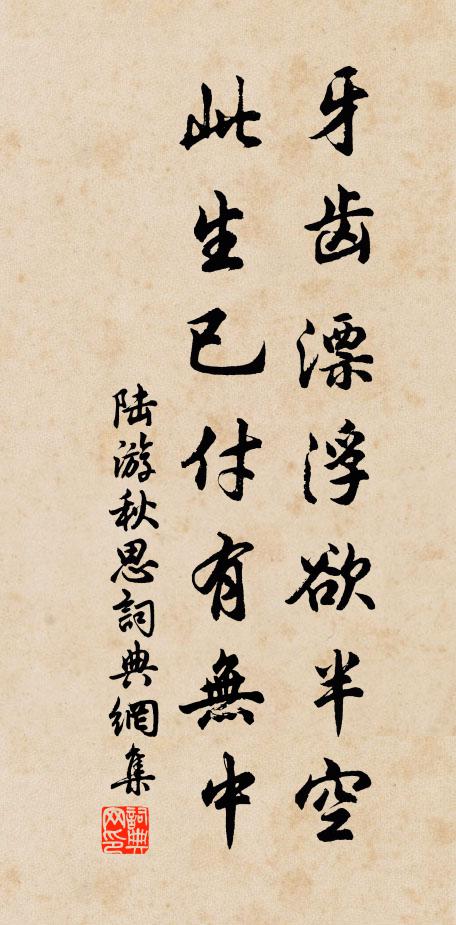 牙齿漂浮欲半空
此生已付有無中
陆游秋思詞典網集
詞典网印